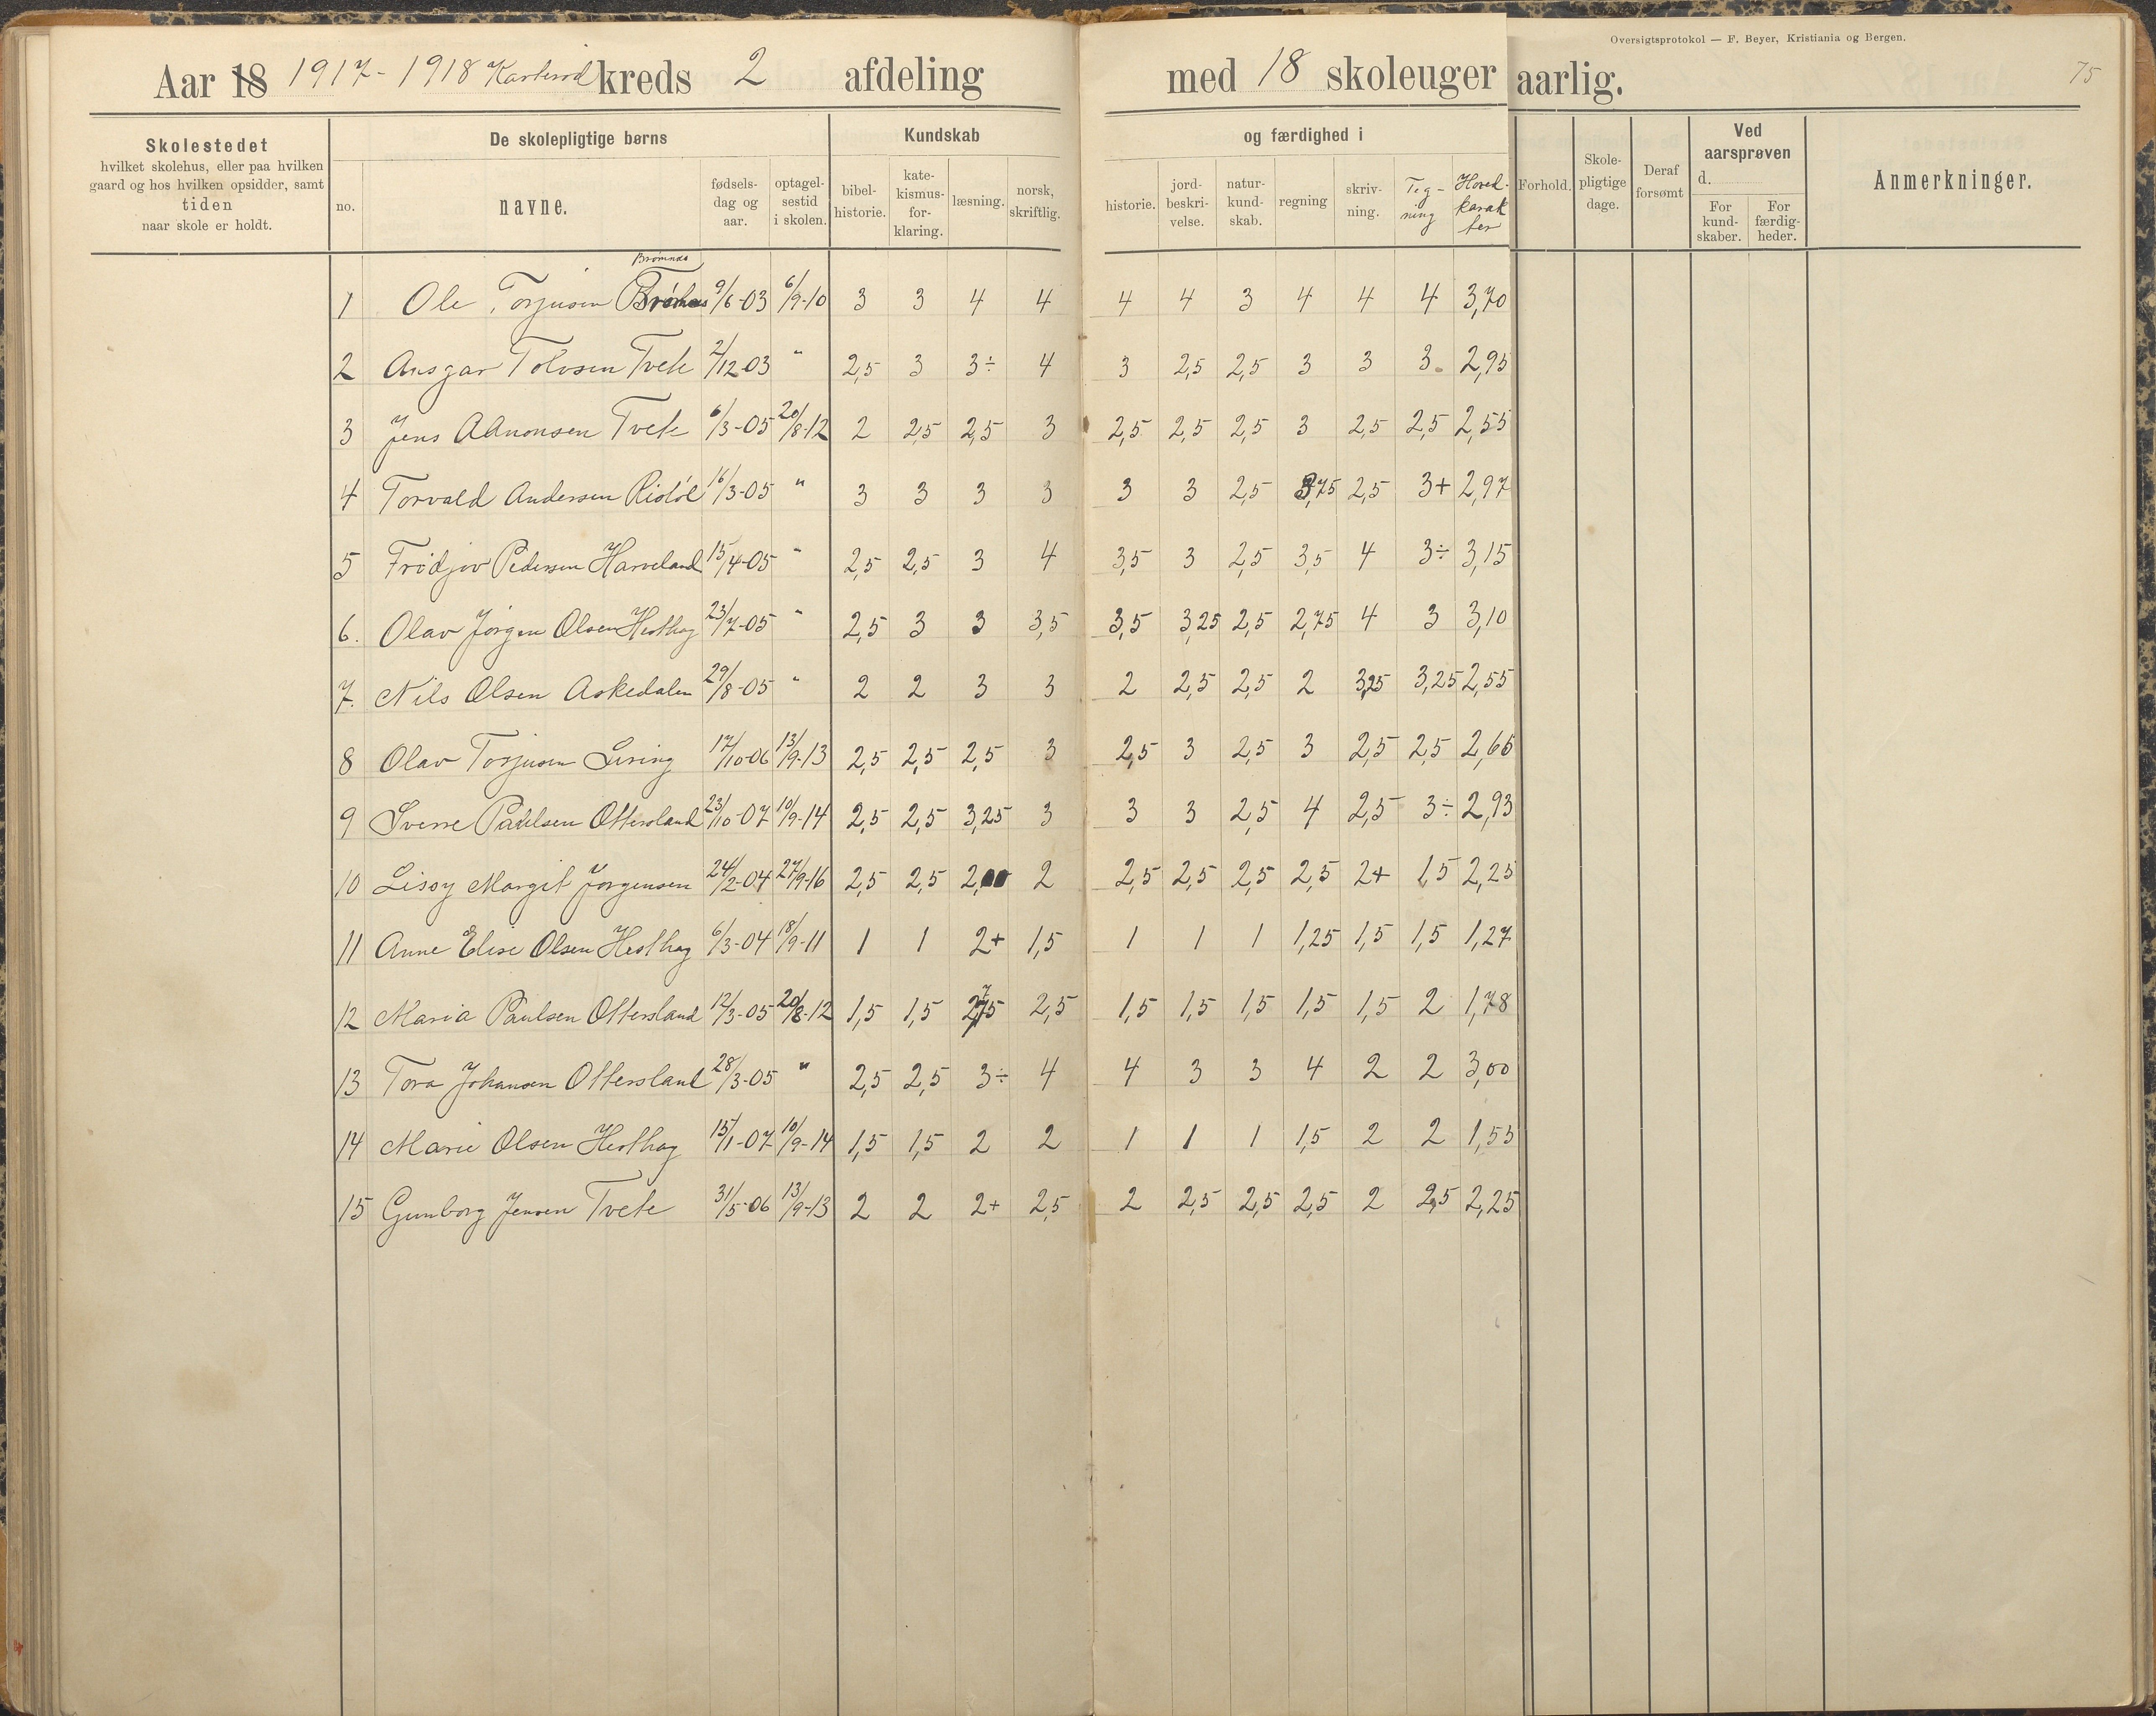 Oversigtsprotokol — F. Beyer, Kristiania og Bergen.
75
Aar 18 1917-1918 kreds 2 afdeling med 18 skoleuger aarlig.
Skolestedet
hvilket skolehus, eller paa hvilken
gaard og hos hvilken opsidder, samt
tiden
naar skole er holdt.
De skolepligtige børns
no.
navne.
fødsels-
dag og
aar.
optagel-
sestid
i skolen.
Kundskab
bibel-
historie.
kate-
kismus-
for-
klaring.
læsning.
norsk,
skriftlig.
og færdighed i
historie.
jord-
beskri-
velse.
natur-
kund-
skab.
regning
skriv-
ning.
Teg-
ning
Hoved-
karak
ter
Forhold.
Skole-
pligtige
dage.
Deraf
forsømt
Ved
aarsprøven
d.
For
kund-
skaber.
For
færdig-
heder.
Anmerkninger.
Brømnes
1 Ole Torjusen 9/6-03 6/9-10 3 3 4 4 4 4 3 4 4 4 3,70
2 Ansgar Tolvsen Tvete 2/12-03 " 2,5 3 3÷ 4 3 2,5 2,5 3 3 3 2,95
3 Jens Aanonsen Tvete 6/3-05 20/8-12 2 2,5 2,5 3 2,5 2,5 2,5 3 2,5 2,5 2,55
4 Torvald Andersen Risløl 16/3-05 " 3 3 3 3 3 3 2,5 3,75 2,5 3+ 2,97
5 Fridjov Pedersen Harveland 15/4-05 " 2,5 2,5 3 4 3,5 3 2,5 3,5 4 3÷ 3,15
6. Olav Jørgen Olsen Hesthag 23/7-05 " 2,5 3 3 3,5 3,5 3,25 2,5 2,75 4 3 3,10
7. Nils Olsen Askedalen 29/8-05 " 2 2 3 3 2 2,5 2,5 2 3,25 3,25 2,55
8 Olav Torjusen Liring 17/10-06 13/9-13 2,5 2,5 2,5 3 2,5 3 2,5 3 2,5 2,5 2,65
9 Sverre Paulsen Ottersland 23/10-07 10/9-14 2,5 2,5 3,25 3 3 3 2,5 4 2,5 3÷ 2,93
10 Lisoy Margit Jørgensen 24/2-04 27/9-16 2,5 2,5 2,00 2 2,5 2,5 2,5 2,5 2+ 1,5 2,25
11 Anne Elise Olsen Hesthag 6/3-04 18/9-11 1 1 2+ 1,5 1 1 1 1,25 1,5 1,5 1,27
12 Maria Paulsen Ottersland 12/3-05 20/8-12 1,5 1,5 2,75 2,5 1,5 1,5 1,5 1,5 1,5 2 1,78
13 Tora Johansen Ottersland 28/3-05 " 2,5 2,5 3÷ 4 4 3 3 4 2 2 3,00
14 Marie Olsen Hesthag 15/1-07 10/9-14 1,5 1,5 2 2 1 1 1 1,5 2 2 1,55
15 Gunborg Jensen Tvete 31/5-06 13/9-13 2 2 2+ 2,5 2 2,5 2,5 2,5 2 2,5 2,25